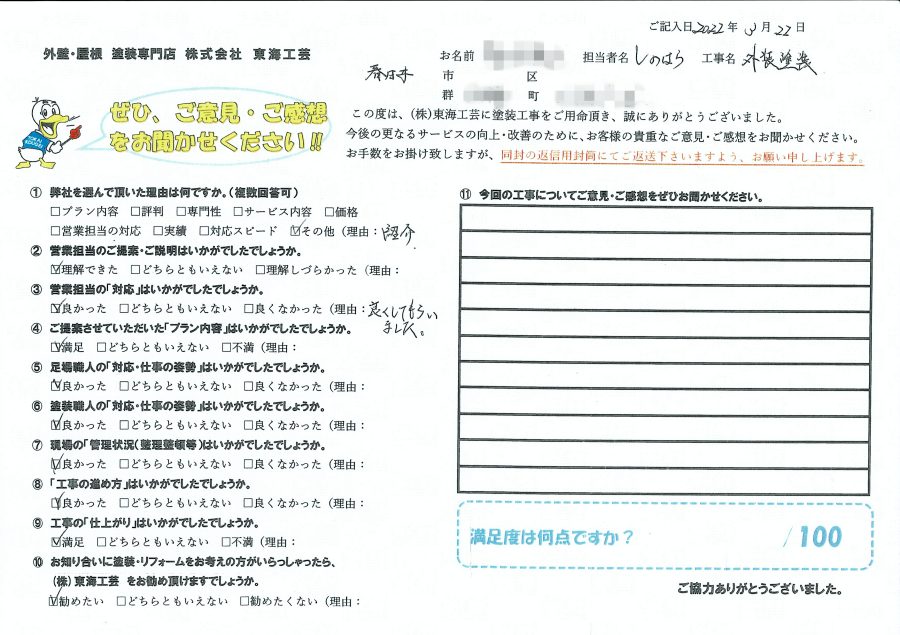 ご記入日2022年 3月 27日
外壁・屋根 塗装専門店 株式会社 東海工芸
お名前 担当者名 しのはら 工事名 外装塗装
春日井 市 区
群 町
ぜひ、ご意見・ご感想
をお聞かせください!!
この度は、(株)東海工芸に塗装工事をご用命頂き、誠にありがとうございました。
今後の更なるサービスの向上・改善のために、お客様の貴重なご意見・ご感想をお聞かせください。
お手数をお掛け致しますが、同封の返信用封筒にてご返送下さいますよう、お願い申し上げます。
① 弊社を選んで頂いた理由は何ですか。(複数回答可)
□プラン内容 □評判 □専門性 □サービス内容 □価格
□営業担当の対応 □実績 □対応スピード ☑その他(理由:紹介
② 営業担当のご提案・ご説明はいかがでしたでしょうか。
☑理解できた □どちらともいえない □理解しづらかった(理由:
③ 営業担当の「対応」はいかがでしたでしょうか。
☑良かった □どちらともいえない □良くなかった(理由:良くしてもらい
ました。
④ ご提案させていただいた「プラン内容」はいかがでしたでしょうか。
☑満足 □どちらともいえない □不満(理由:
⑤ 足場職人の「対応・仕事の姿勢」はいかがでしたでしょうか。
☑良かった □どちらともいえない □良くなかった(理由:
⑥ 塗装職人の「対応・仕事の姿勢」はいかがでしたでしょうか。
☑良かった □どちらともいえない □良くなかった(理由:
⑦ 現場の「管理状況(整理整頓等)はいかがでしたでしょうか。
☑良かった □どちらともいえない □良くなかった(理由:
⑧ 「工事の進め方」はいかがでしたでしょうか。
☑良かった □どちらともいえない □良くなかった(理由:
⑨ 工事の「仕上がり」はいかがでしたでしょうか。
☑満足 □どちらともいえない □不満(理由:
⑩ お知り合いに塗装・リフォームをお考えの方がいらっしゃったら、
(株)東海工芸 をお勧め頂けますでしょうか。
☑勧めたい □どちらともいえない □勧めたくない(理由:
⑪ 今回の工事についてご意見・ご感想をぜひお聞かせください。
満足度は何点ですか? /100
ご協力ありがとうございました。